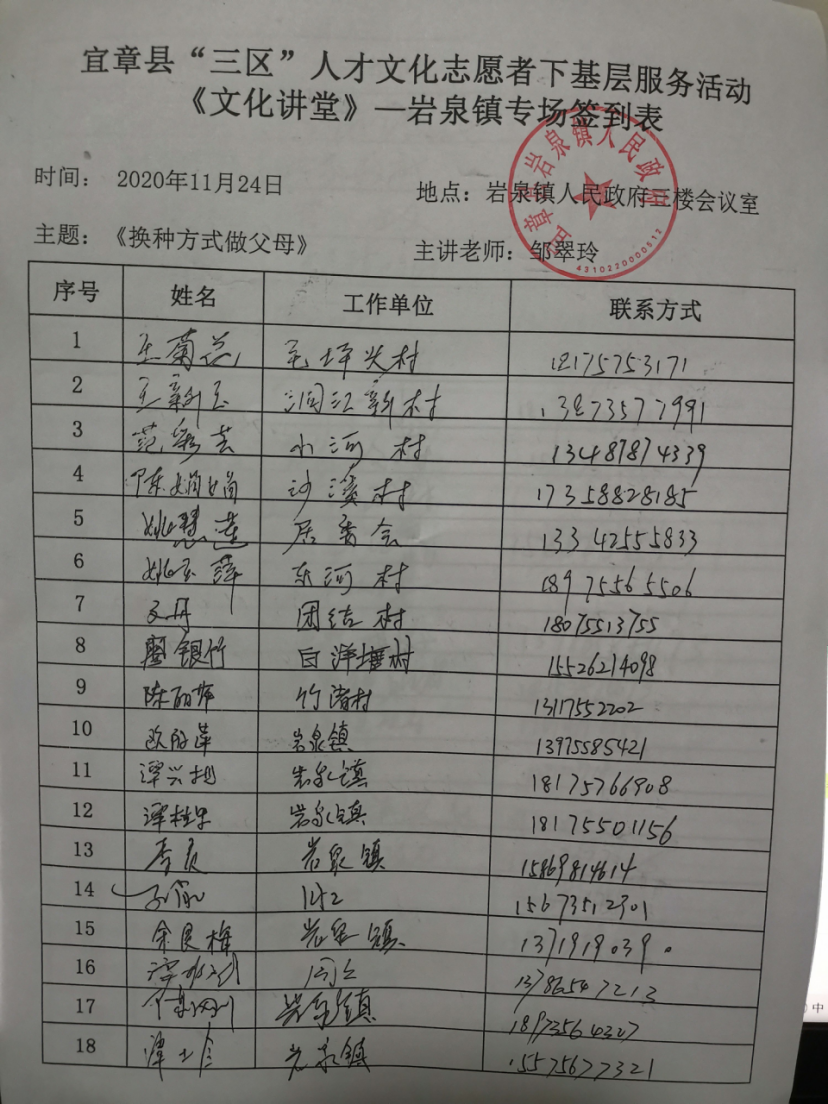 宜章县“三区”人才文化志愿者下基层服务活动
《文化讲堂》—岩泉镇专场签到表
时间： 2020年11月24日 地点：岩泉镇人民政府三楼会议室
主题：《换种方式做父母》 主讲老师：邹翠玲
宜章县岩泉镇人民政府
4310220000512
序号 姓名 工作单位 联系方式
1 王菊兰 毛坪头村 18175753171
2 王新玉 涧江新村 13873577991
3 范彩芸 小河村 13487874339
4 陈娟娟 沙溪村 17358828185
5 姚慧莲 居委会 13342555833
6 姚玉萍 东河村 18975565506
7 文丹 团结村 18075513755
8 廖银竹 白洋塘村 15526214098
9 陈丽萍 竹渚村 13117552202
10 欧 萍 岩泉镇 13975585421
11 谭兴 岩泉镇 18175766908
12 谭桂 岩泉镇 18175501156
13 李 岩泉镇 15869814614
14 15673512901
15 余良梅 岩泉镇 1371919039
16 同上 13786547213
17 岩泉镇 18973564327
18 谭 岩泉镇 15575677321
中